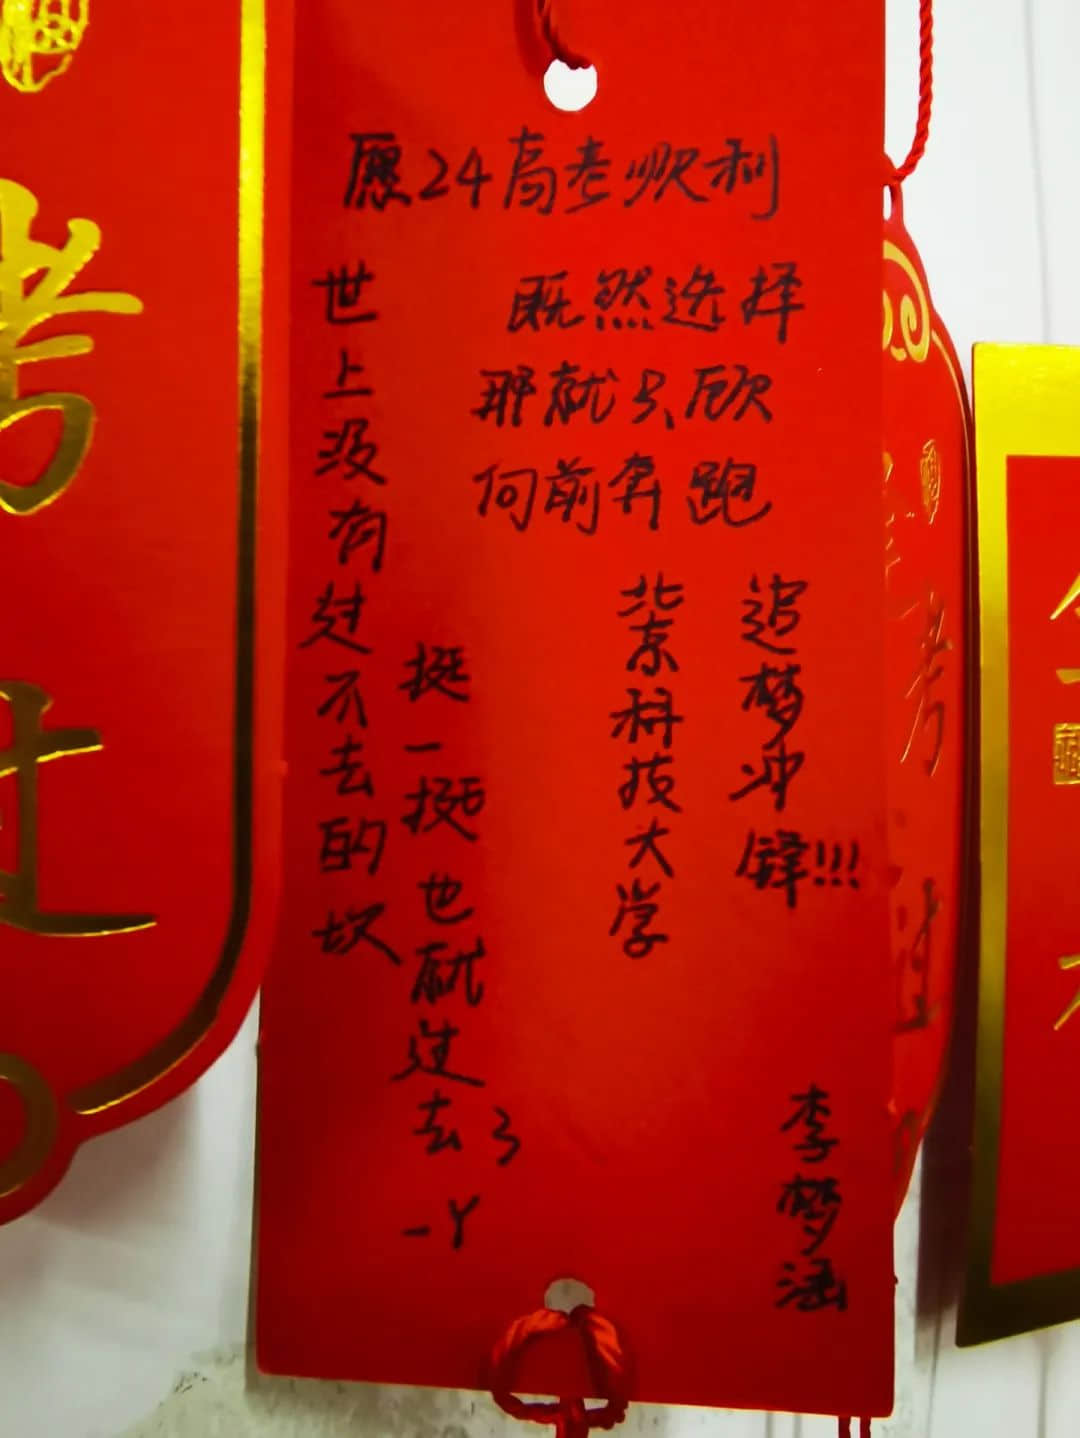 愿24高考顺利
既然选择
那就只顾
向前奔跑
追梦冲锋!!!
北京科技大学
世上没有过不去的坎
挺一挺也就过去了
一丫
李梦涵
考
过
考
过